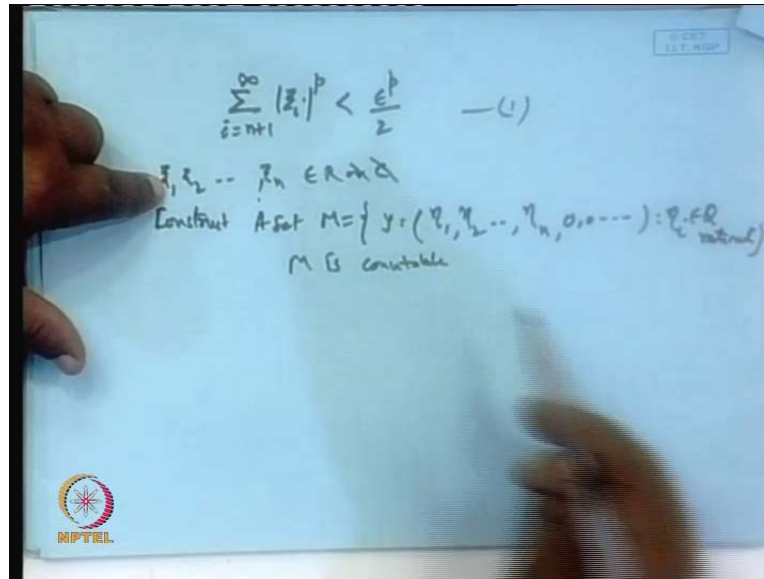 © CET
I.I.T. KGP
∞
∑ |ξᵢ|ᵖ < εᵖ/2 —(1)
i=n+1
ξ₁, ξ₂ -- , ξₙ ∈ R or
Construct A set M = { y = (η₁, η₂ --, ηₙ, 0, 0 ---- ) : ηᵢ ∈ Q
rational }
M is countable
NPTEL